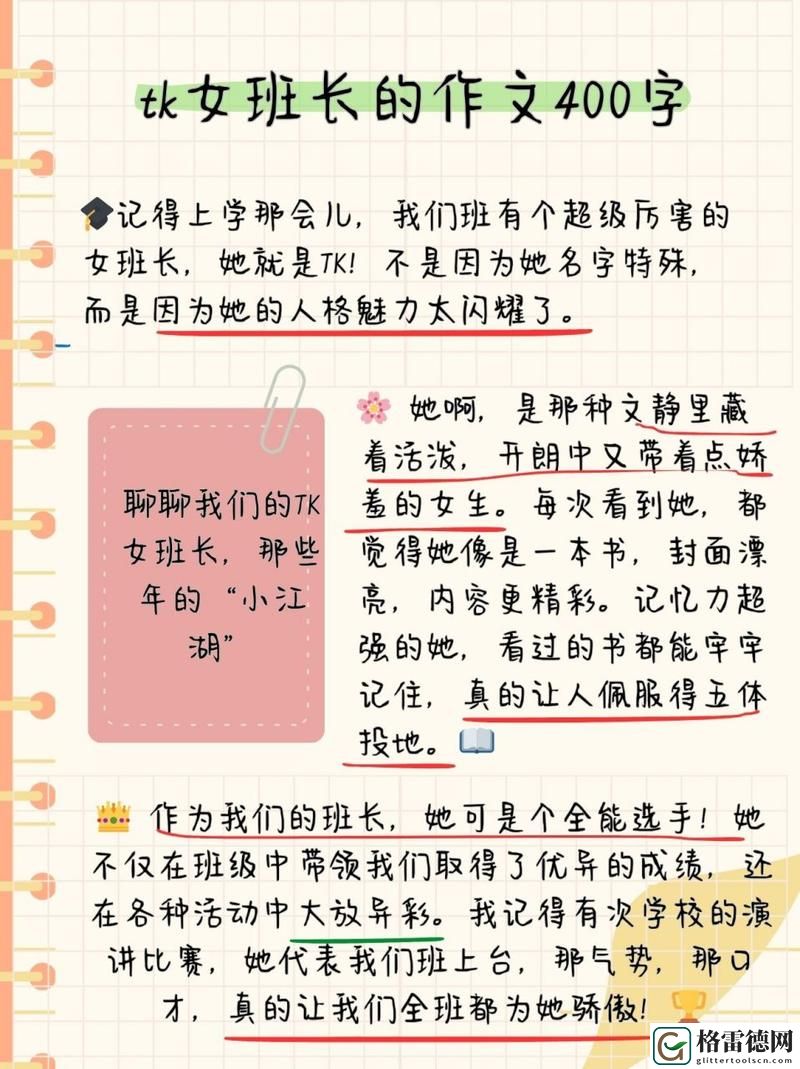 tk女班长的作文400字
🎓记得上学那会儿，我们班有个超级厉害的
女班长，她就是TK！不是因为她名字特殊，
而是因为她的人格魅力太闪耀了。
聊聊我们的TK
女班长，那些
年的“小江
湖”
🌸 她啊，是那种文静里藏
着活泼，开朗中又带着点娇
羞的女生。每次看到她，都
觉得她像是一本书，封面漂
亮，内容更精彩。记忆力超
强的她，看过的书都能牢牢
记住，真的让人佩服得五体
投地。📖
👑 作为我们的班长，她可是个全能选手！她
不仅在班级中带领我们取得了优异的成绩，还
在各种活动中大放异彩。我记得有次学校的演
讲比赛，她代表我们班上台，那气势，那口
才，真的让我们全班都为她骄傲！🏆
格雷德网
glittertoolscn.com